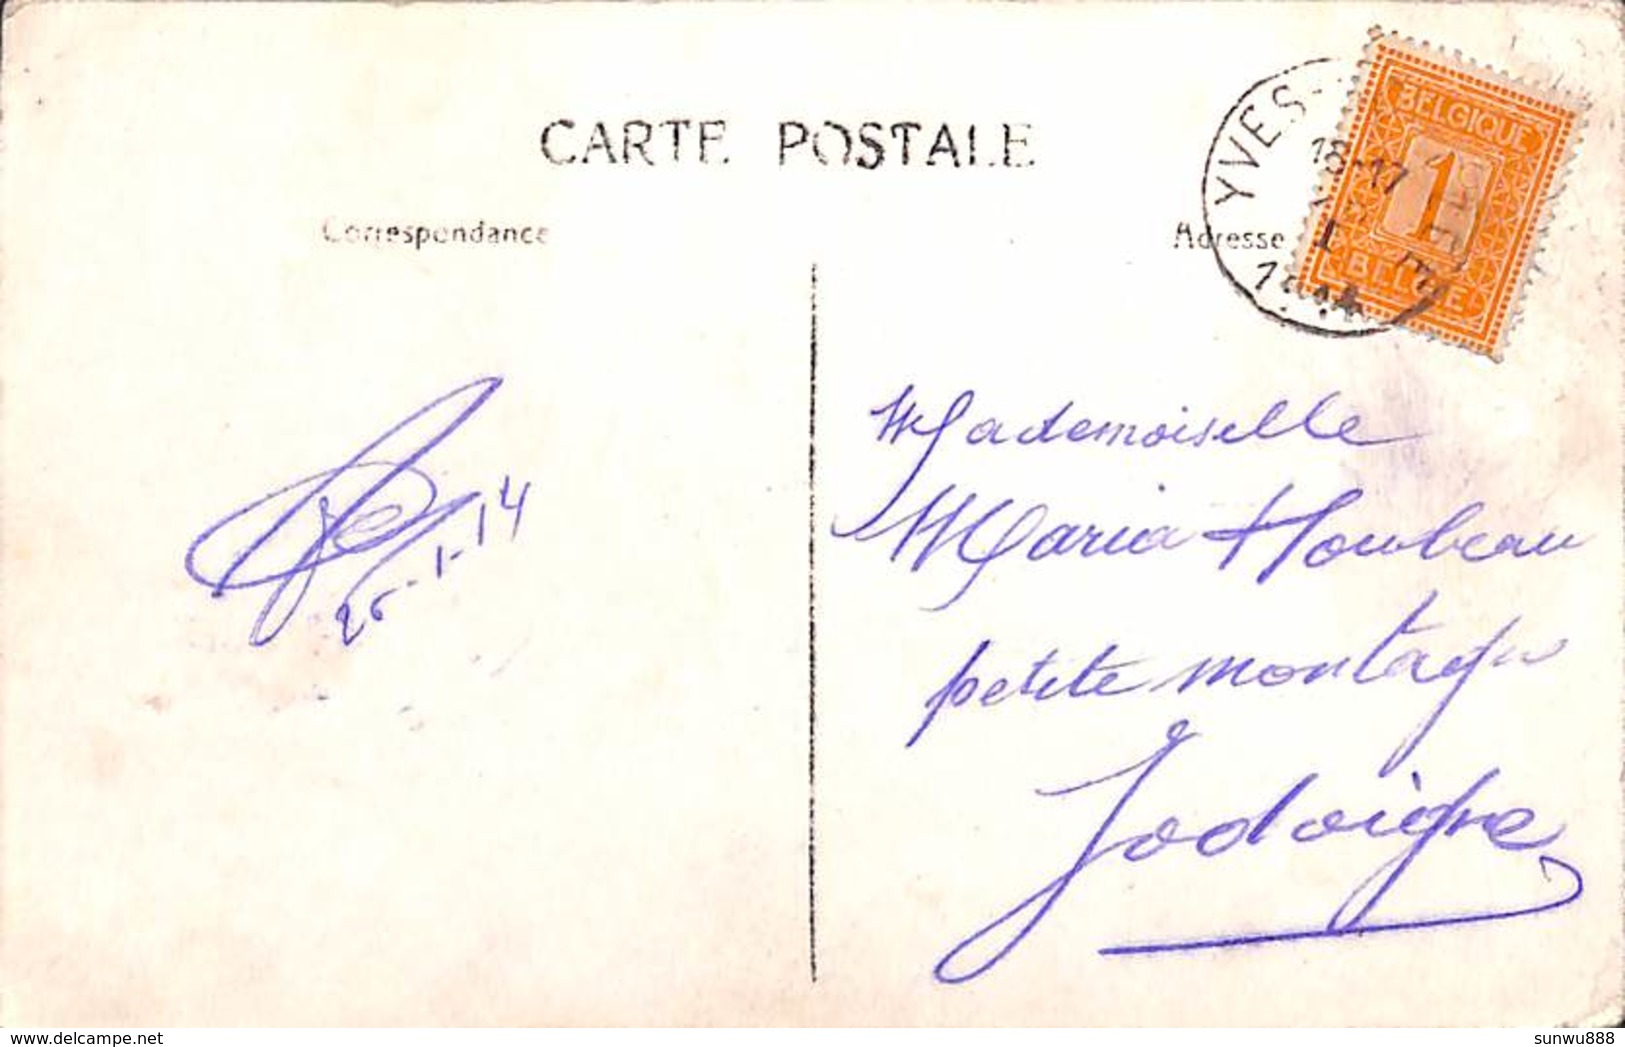 CARTE POSTALE
Correspondance
Adresse
YVES-
18-17
I
BELGIQUE
1
BELGIE
26-1-14
Mademoiselle
Maria Houbeau
petite montagne
Jodoigne
delcampe.net
sunwu888